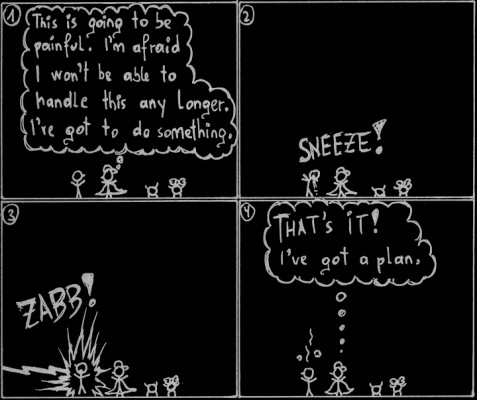 1
This is going to be
painful. I'm afraid
I won't be able to
handle this any longer.
I've got to do something.
2
SNEEZE!
3
ZABB!
4
THAT'S IT!
I've got a plan.